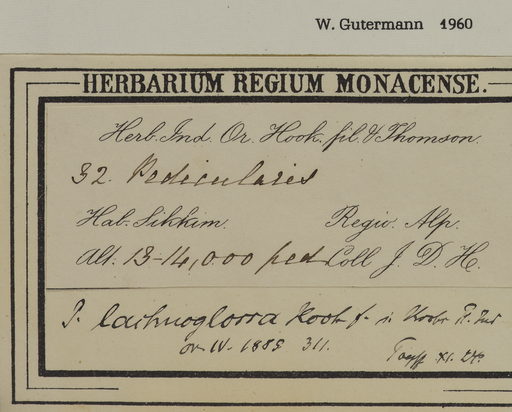 W. Gutermann 1960
HERBARIUM REGIUM MONACENSE.
Herb. Ind. Or. Hook. fil. & Thomson.
32. Pedicularis
Hab. Sikkim. Regio. Alp.
Alt: 13-14,000 ped Coll. J. D. H.
P. lachnoglossa Hook f. in Hook Fl. Ind
or. IV. 1885 311.